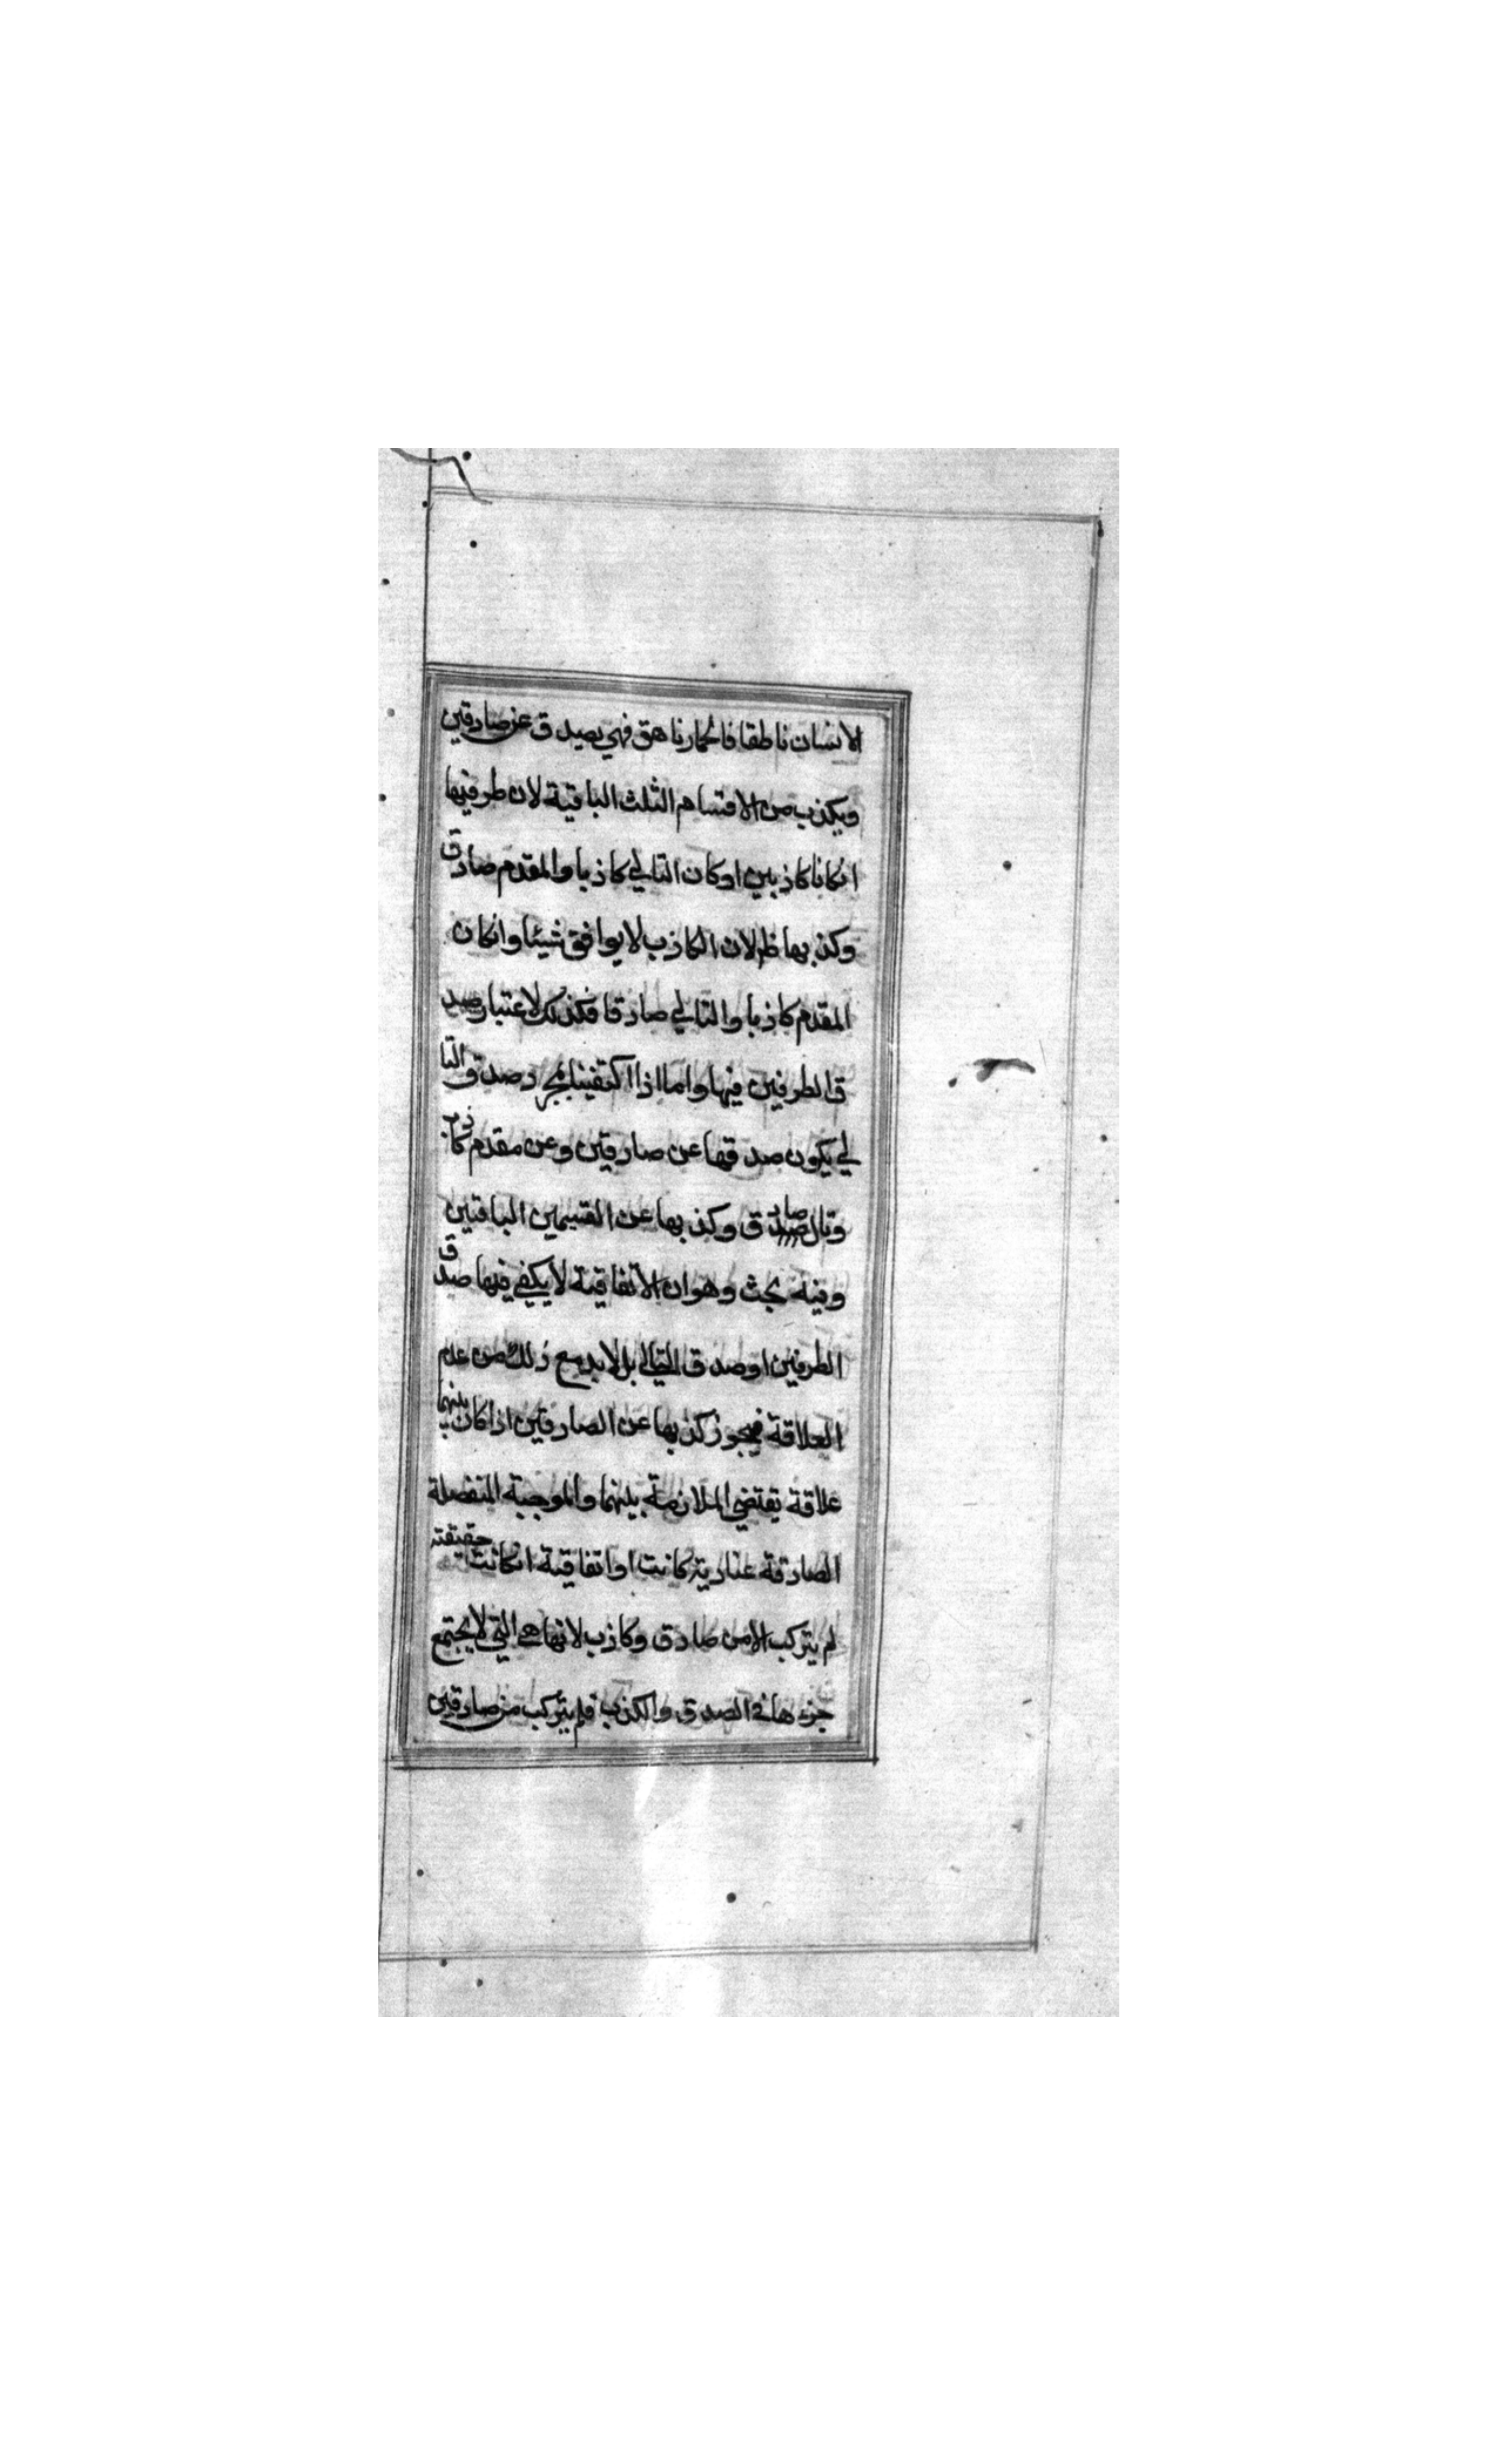 الانسان ناطقا فالحمار ناهق فهي يصدق عن صادقين
ويكذب من الاقسام الثلث الباقية لان طرفيها
انكانا كاذبين او كان التالي كاذبا والمقدم صادق
وكذبها ظ لان الكاذب لا يوافق شيئا وانكان
المقدم كاذبا والتالي صادقا فكذلك لاعتبار صد
ق الطرفين فيها واما اذا اكتفينا بمجرد صدق التا
لي يكون صدقها عن صادقين وعن مقدم كاذب
وتال صادق وكذبها عن القسمين الباقيين
وفيه بحث وهو ان الاتفاقية لا يكفي فيها صدق
الطرفين او صدق التالي بل لابد مع ذلك من عدم
العلاقة فيجوز كذبها عن الصادقين اذا كان بينهما
علاقة يقتضي الملازمة بينهما والموجبة المنفصلة
الصادقة عنادية كانت او اتفاقية انكانت حقيقته
لم يتركب الا من صادق وكاذب لانها هي التي لا يجتمع
جزءها في الصدق والكذب فلم يتركب من صادقين